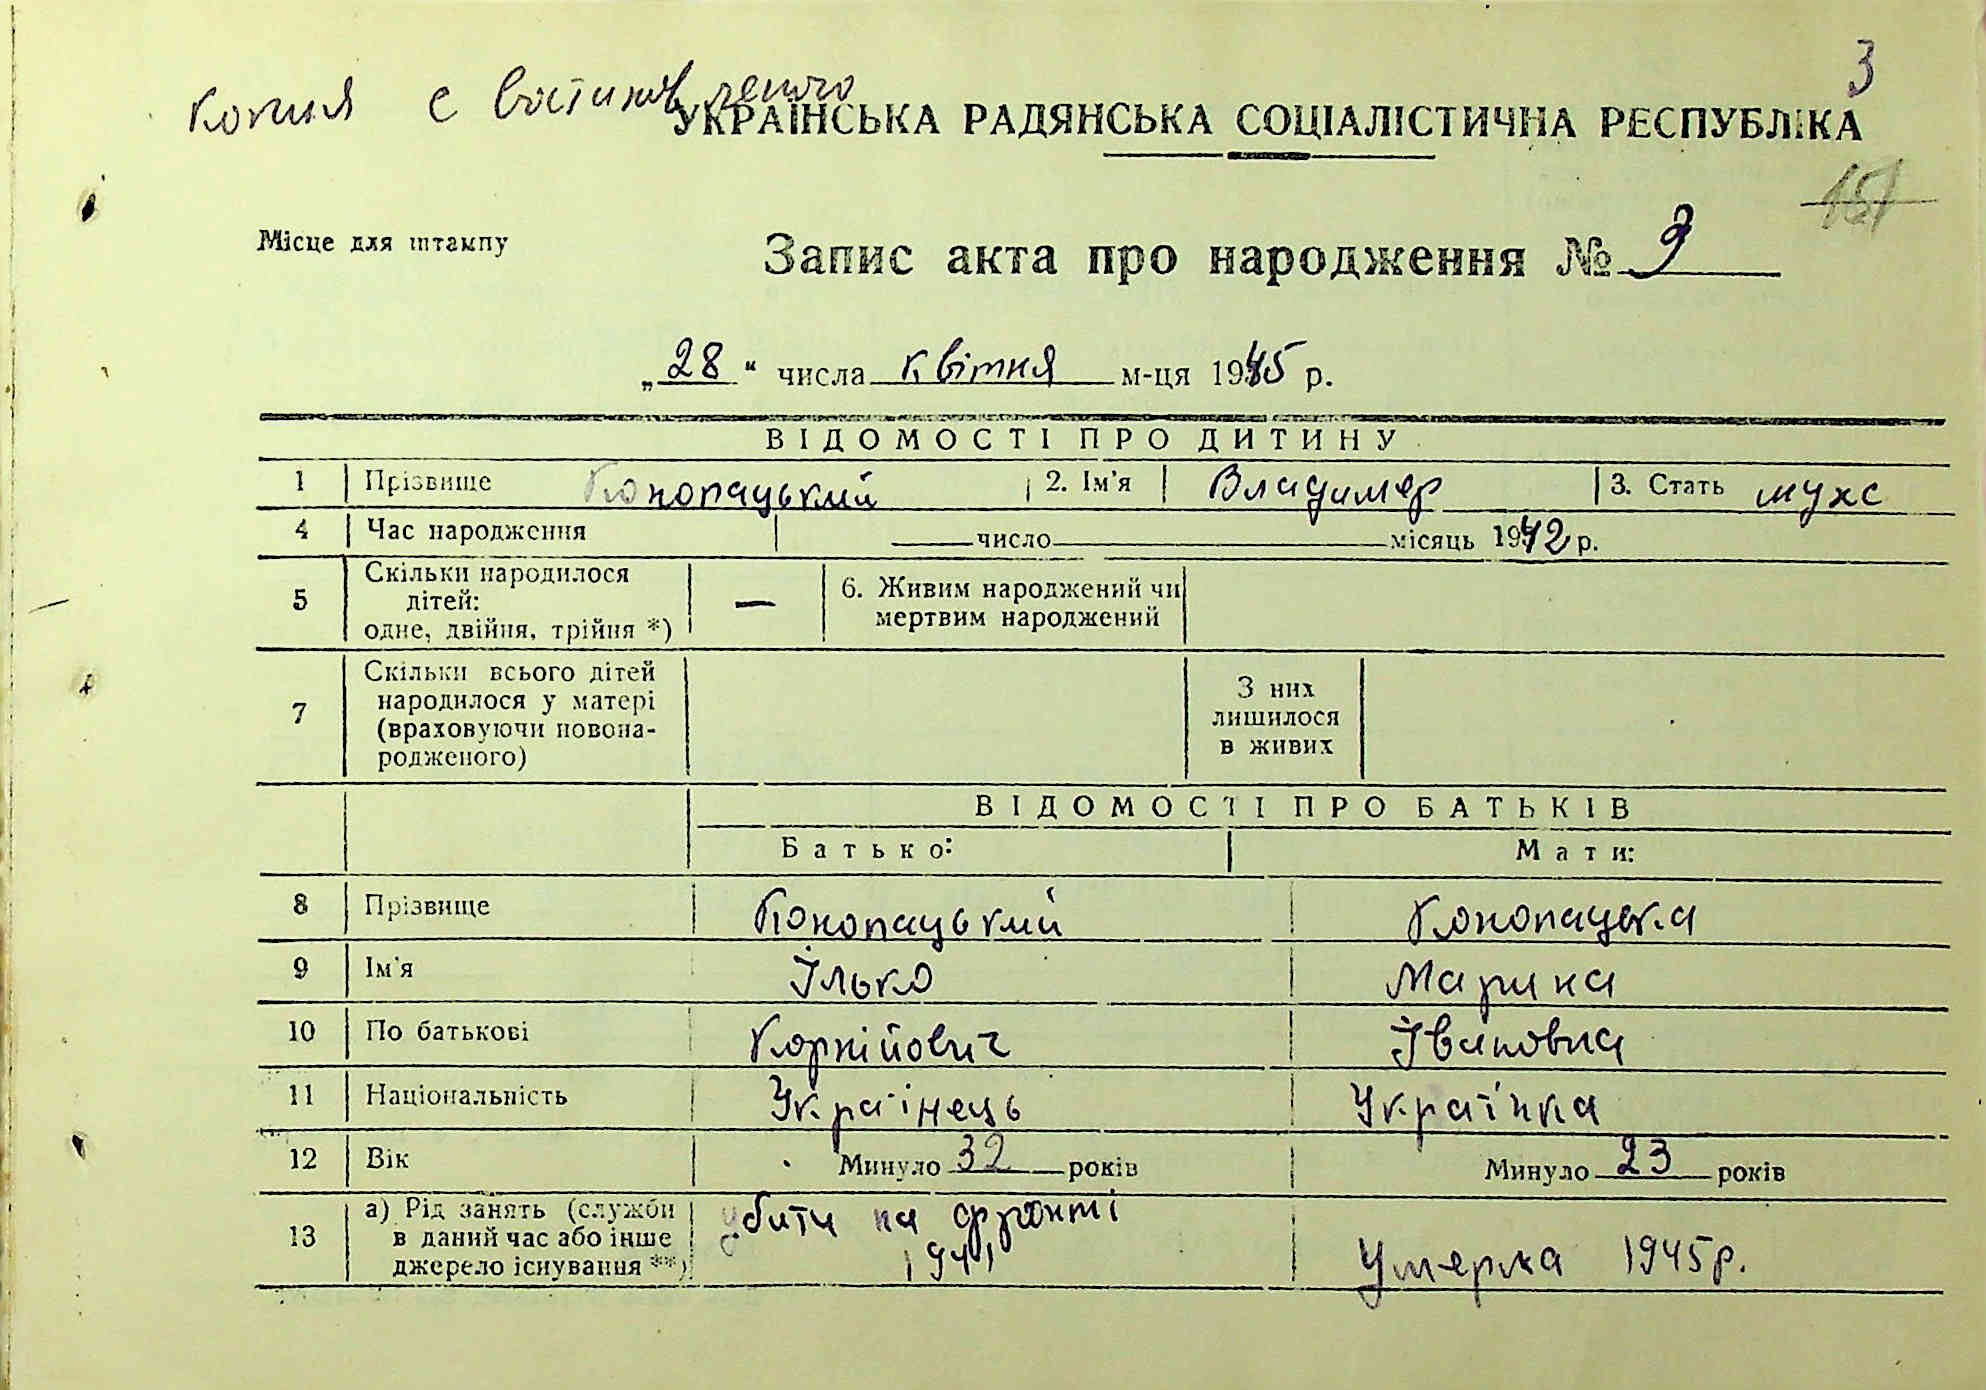 3
Копия с
УКРАЇНСЬКА РАДЯНСЬКА СОЦІАЛІСТИЧНА РЕСПУБЛІКА
Місце для штампу
Запис акта про народження № 9
„28“ числа квітня м-ця 1945 р.
ВІДОМОСТІ ПРО ДИТИНУ
1 Прізвище Конопацький 2. Ім'я Владимер 3. Стать мужс
4 Час народження число місяць 1942 р.
5 Скільки народилося дітей: одне, двійня, трійня *) — 6. Живим народжений чи мертвим народжений
7 Скільки всього дітей народилося у матері (враховуючи новонародженого) З них лишилося в живих
ВІДОМОСТІ ПРО БАТЬКІВ
Батько: Мати:
8 Прізвище Конопацький Конопацька
9 Ім'я Ілько Марина
10 По батькові Корнійович Івановна
11 Національність Українець Українка
12 Вік Минуло 32 років Минуло 23 років
13 а) Рід занять (служби в даний час або інше джерело існування **) убити на фронті 1941 Умерла 1945р.